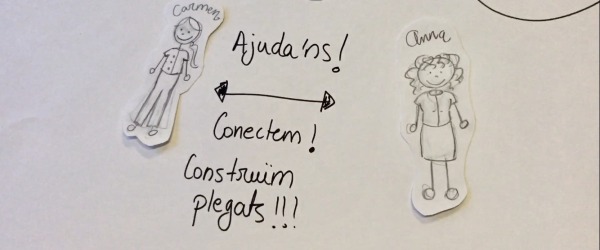 Carmen
Anna
Ajuda'ns!
Conectem!
Construïm
plegats!!!